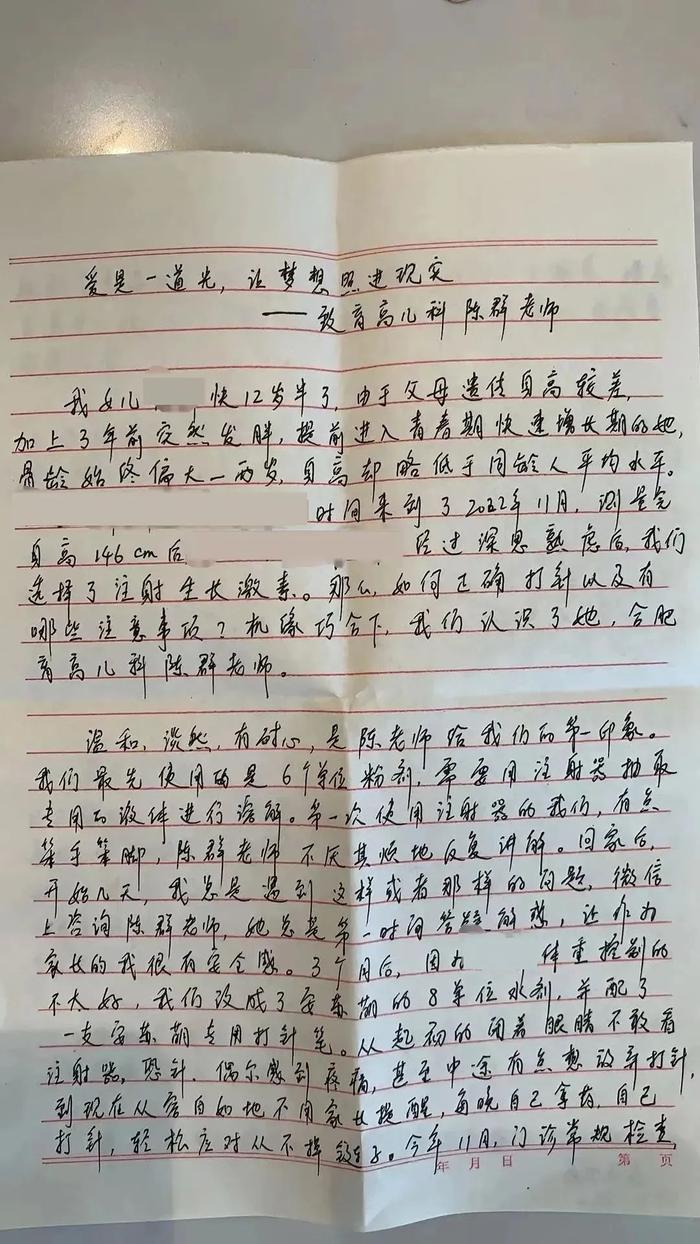 爱是一道光，让梦想照进现实
——致育高儿科陈群老师
我女儿 快12岁半了，由于父母遗传身高较差，
加上3年前突然发胖，提前进入青春期快速增长期的她，
骨龄始终偏大一两岁，身高却略低于同龄人平均水平。
时间来到了2022年11月，测量完
身高146cm后 经过深思熟虑后，我们
选择了注射生长激素。那么，如何正确打针以及有
哪些注意事项？机缘巧合下，我们认识了她，合肥
育高儿科陈群老师。
温和、淡然、有耐心，是陈老师给我们的第一印象。
我们最先使用的是6个单位粉剂，需要用注射器抽取
专用的液体进行溶解。第一次使用注射器的我们，有点
笨手笨脚，陈群老师不厌其烦地反复讲解。回家后，
开始几天，我总是遇到这样或者那样的问题，微信
上咨询陈群老师，她总是第一时间答疑解惑，让作为
家长的我很有安全感。3个月后，因为 体重控制的
不太好，我们改成了安苏萌的8单位水剂，并配了
一支安苏萌专用打针笔。从起初的闭着眼睛不敢看
注射器，恐针，偶尔感到疼痛，甚至中途有点想放弃打针，
到现在从容自如地不用家长提醒，每晚自己拿药，自己
打针，轻松应对从不掉链子。今年11月，门诊常规检查，
年 月 日 第 页